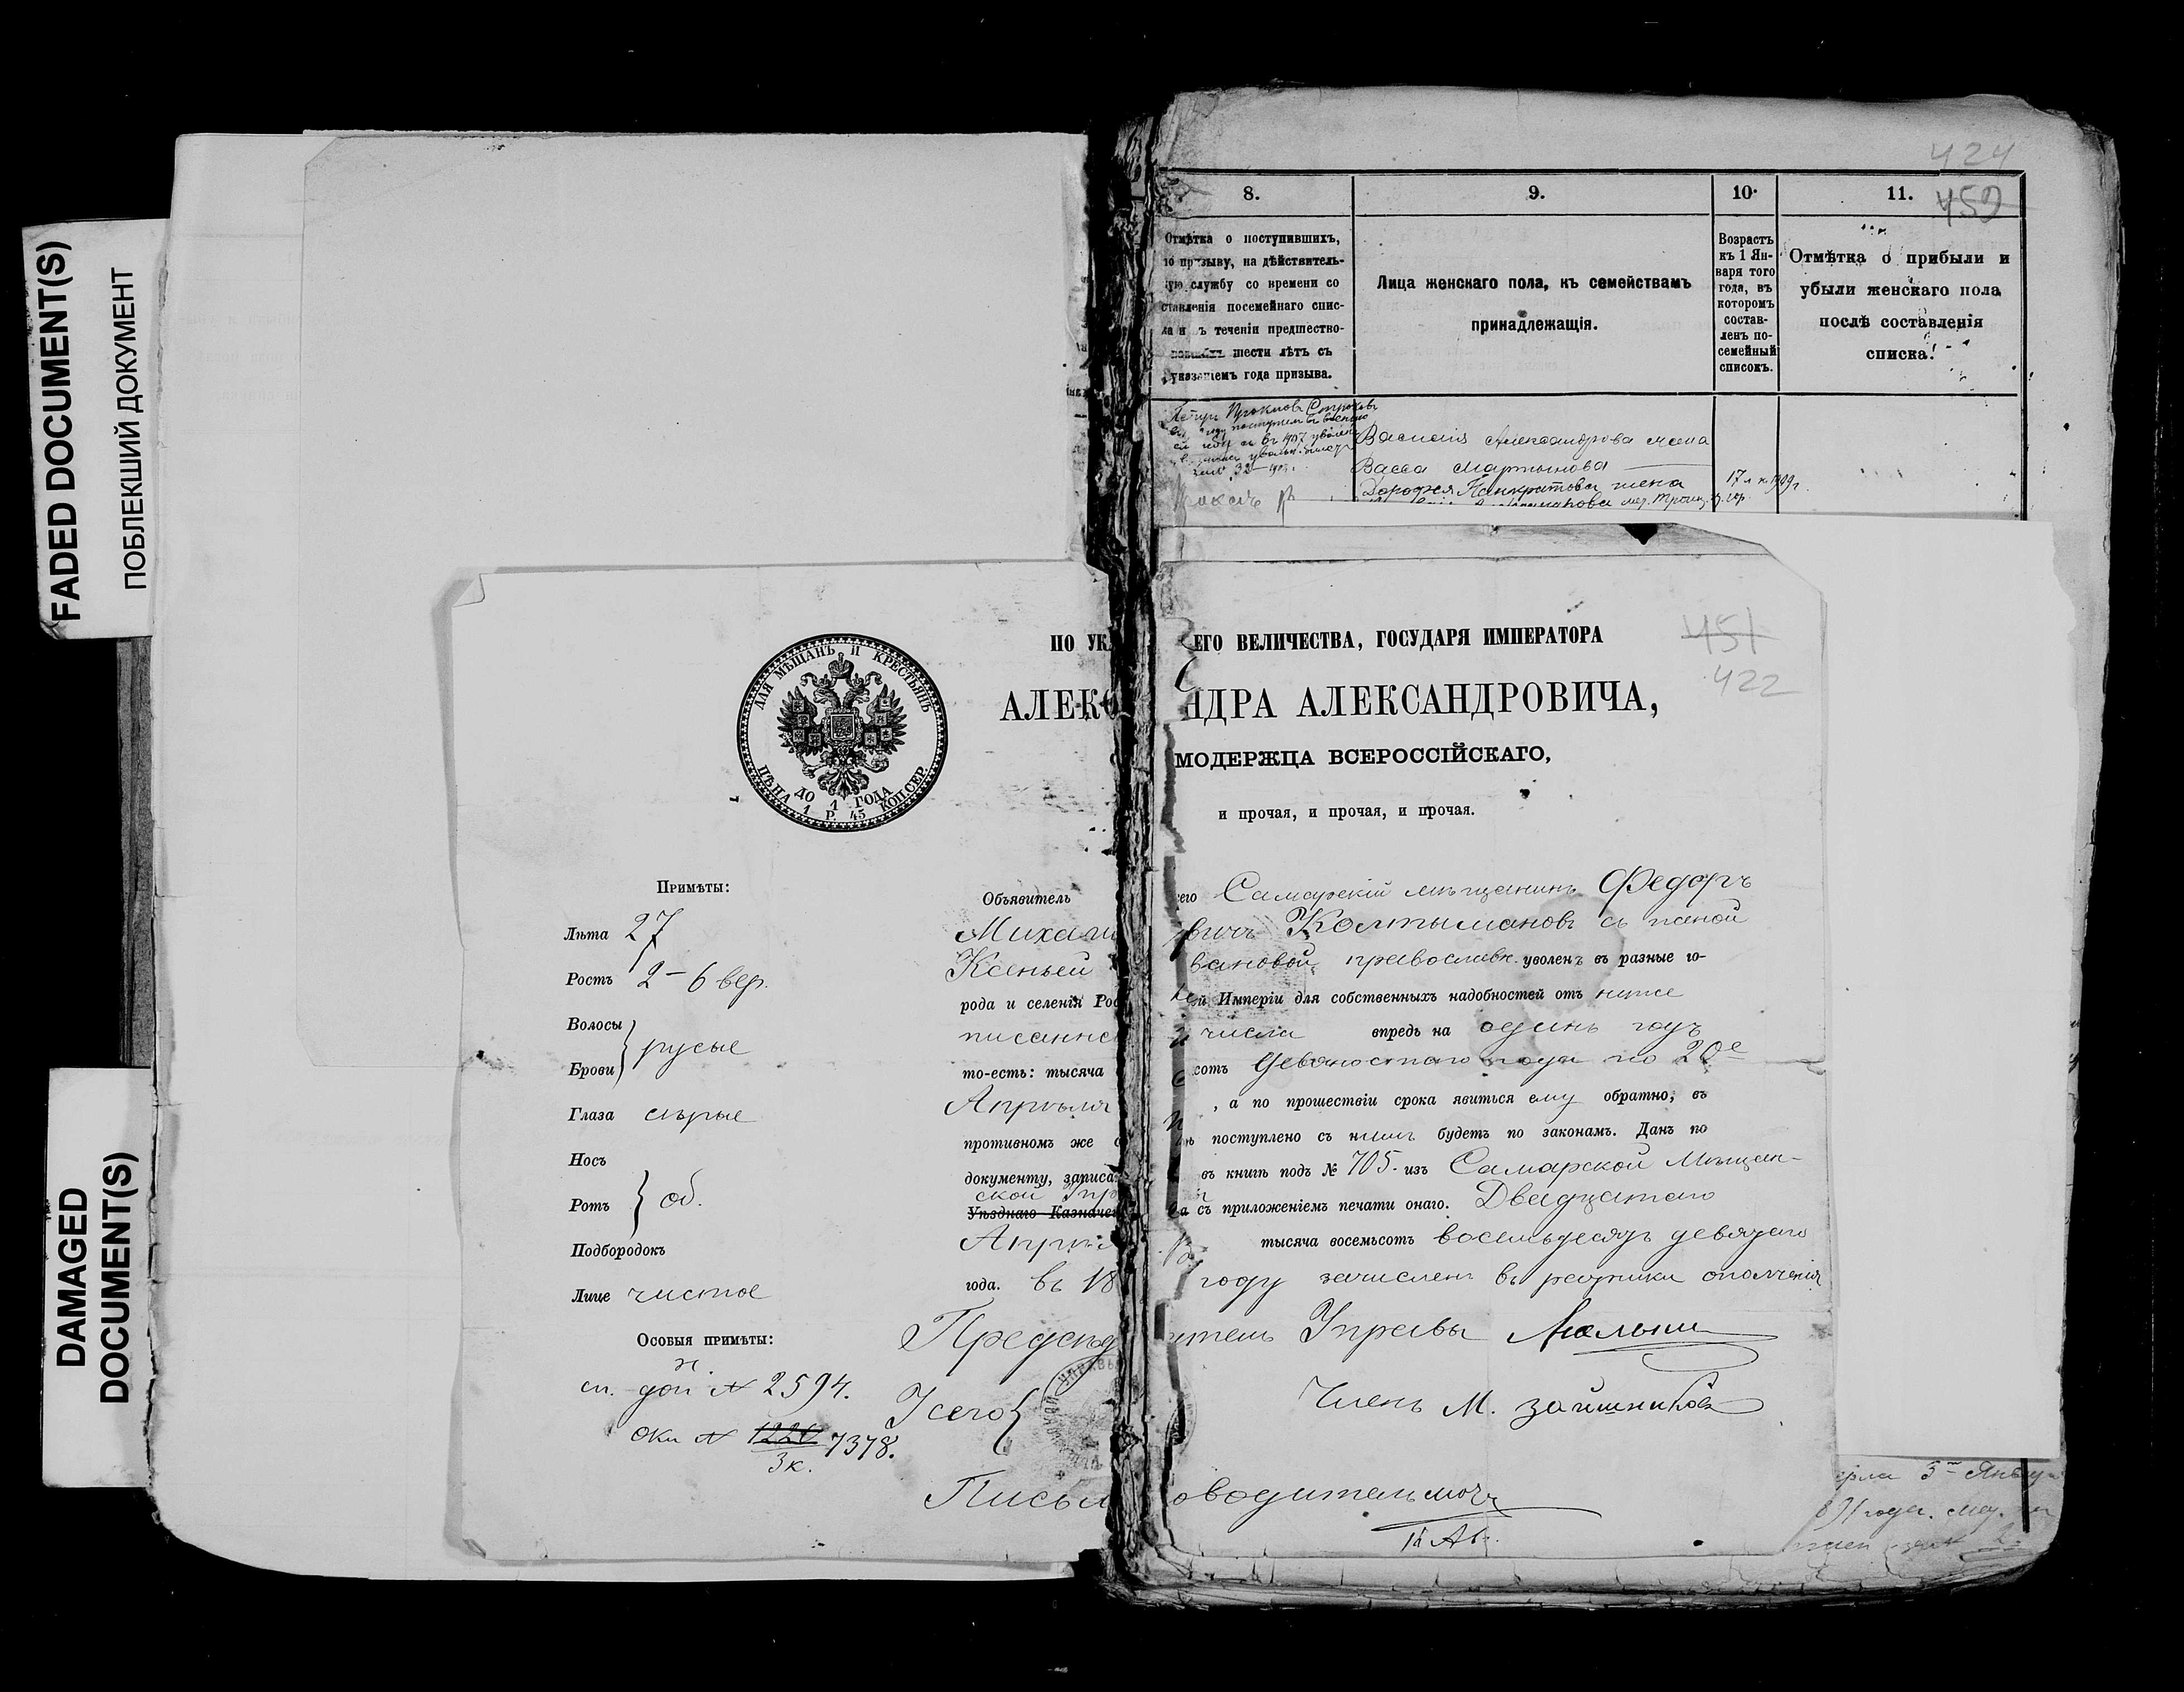 FADED DOCUMENT(S)
ПОБЛЕКШИЙ ДОКУМЕНТ
DAMAGED
DOCUMENT(S)
424
8.
9.
10.
11.
459
Отмѣтка о поступившихъ,
по призыву, на дѣйствитель-
ную службу со времени со
ставленія посемейнаго спис-
ка и въ теченіи предшество-
шести лѣтъ съ
указаніемъ года призыва.
Лица женскаго пола, къ семействамъ
принадлежащія.
Возрастъ
къ 1 Ян-
варя того
года, въ
которомъ
состав-
ленъ по-
семейный
списокъ.
Отмѣтка о прибыли и
убыли женскаго пола
послѣ составленія
списка.
въ 1907
Александрова
Васса Мартынова
Дарофея Панкратова жена 17 л к 1909 г.
451
422
ДЛЯ МѢЩАНЪ И КРЕСТЬЯНЪ
ДО 1 ГОДА
ЦѢНА 1 Р. 45 КОП. СЕР.
ПО УК ЕГО ВЕЛИЧЕСТВА, ГОСУДАРЯ ИМПЕРАТОРА
АЛЕКСАНДРА АЛЕКСАНДРОВИЧА,
МОДЕРЖЦА ВСЕРОССІЙСКАГО,
и прочая, и прочая, и прочая.
Примѣты:
Лѣта 27
Ростъ 2 – 6 вер.
Волосы
Брови } русые
Глаза сѣрые
Носъ
Ротъ } об.
Подбородокъ
Лице чистое
Особыя примѣты:
сп. дой № 2594.
оки № 1220 7378.
3 к.
Объявитель сего Самарскій мѣщанинъ Федоръ
Михай вичъ Колтымановъ съ женой
Ксеньей вановой, православн. уволенъ въ разные го-
рода и селенія Рос ой Имперіи для собственныхъ надобностей отъ ниже
писанна числа впредь на одинъ годъ
то-есть: тысяча сотъ девяностаго года по 20е
Апрѣля , а по прошествіи срока явиться ему обратно; въ
противномъ же поступлено съ нимъ будетъ по законамъ. Данъ по
документу, записа въ книгѣ подъ № 705. изъ Самарской Мѣщан-
ской Упр
Уѣзднаго Казначей съ приложеніемъ печати онаго. Двадцатаго
Апрѣ тысяча восемьсотъ восемьдесятъ девятаго
года. въ 18 году зачисленъ въ ратники ополченія
Предсѣд атель Управы
Членъ М.
Письм оводитель